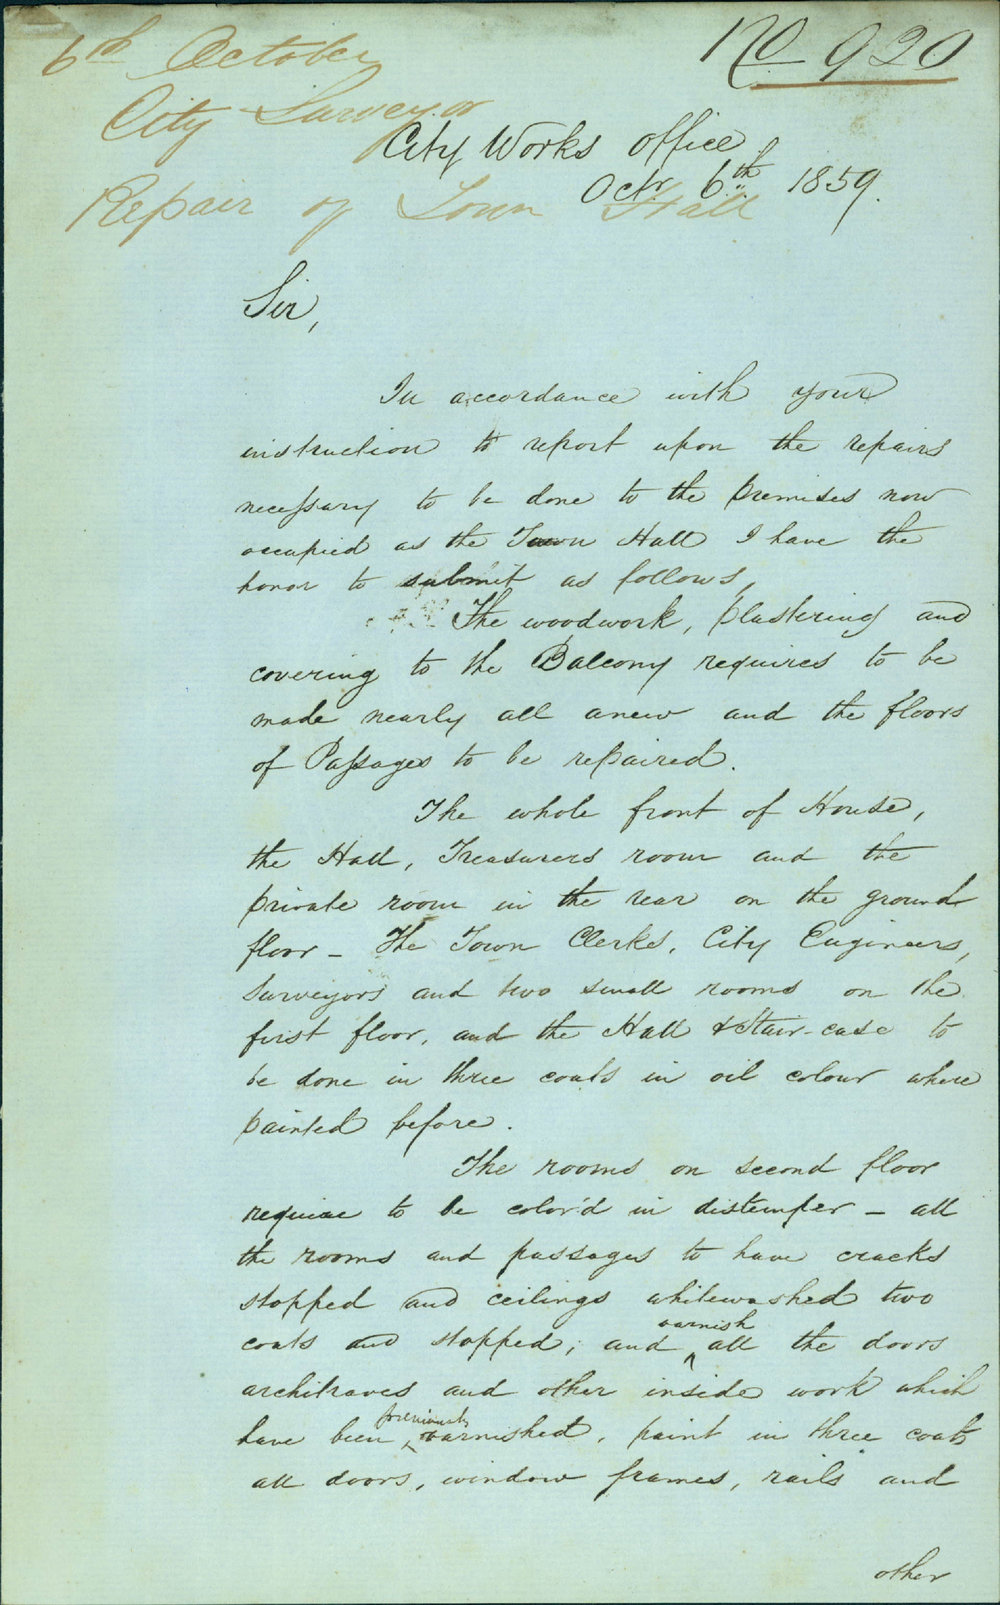 6th October
No 920
City Surveyor
City Works Office
Octr. 6th 1859.
Repair of Town Hall
Sir,
In accordance with your
instruction to report upon the repairs
necessary to be done to the premises now
occupied as the Town Hall I have the
honor to submit as follows,
The woodwork, plastering and
covering to the Balcony requires to be
made nearly all anew and the floors
of Passages to be repaired.
The whole front of House,
the Hall, Treasurers room and the
private room in the rear on the ground
floor – The Town Clerks, City Engineers,
Surveyors and two small rooms on the
first floor, and the Hall & Stair-case to
be done in three coats in oil colour where
painted before.
The rooms on second floor
require to be color'd in distemper – all
the rooms and passages to have cracks
stopped and ceilings whitewashed two
coats and stopped; and varnish all the doors
architraves and other inside work which
have been previously varnished, paint in three coats
all doors, window frames, rails and
other